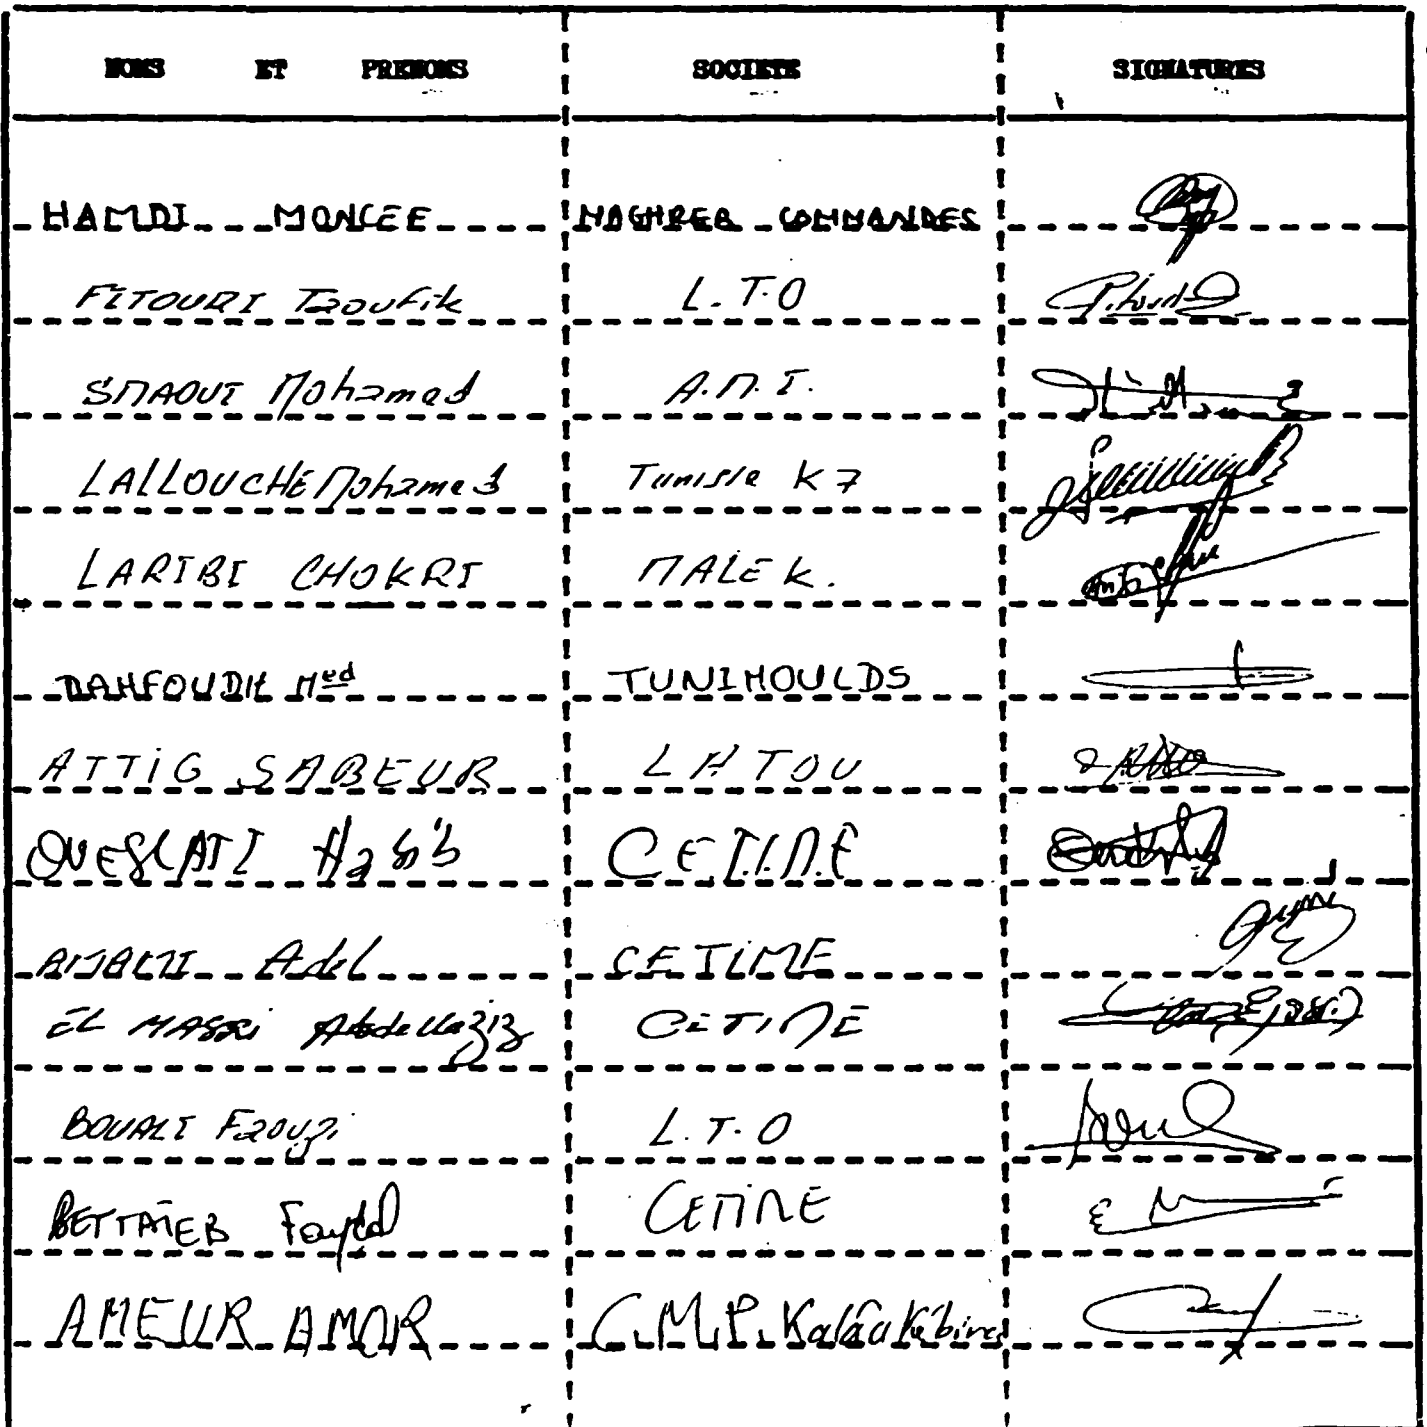 NOMS ET PRENOMS SOCIETE SIGNATURES
HAMDI MONCEF MAGHREB COMMANDES
FITOURI Taoufik L.T.O
SMAOUI Mohamed A.M.I.
LALLOUCHE Mohamed Tunisie K7
LARIBI CHOKRI MALEK.
MAHFOUDH Med TUNIMOULDS
ATTIG SABEUR LATOU
OUESLATI Habib CETIME
Adel CETIME
EL MASRI Abdellaziz CETIME
BOUALI Faouzi L.T.O
BETTAIEB Fayçal CETIME
AMEUR AMOR C.M.P. Kalâa Kébira